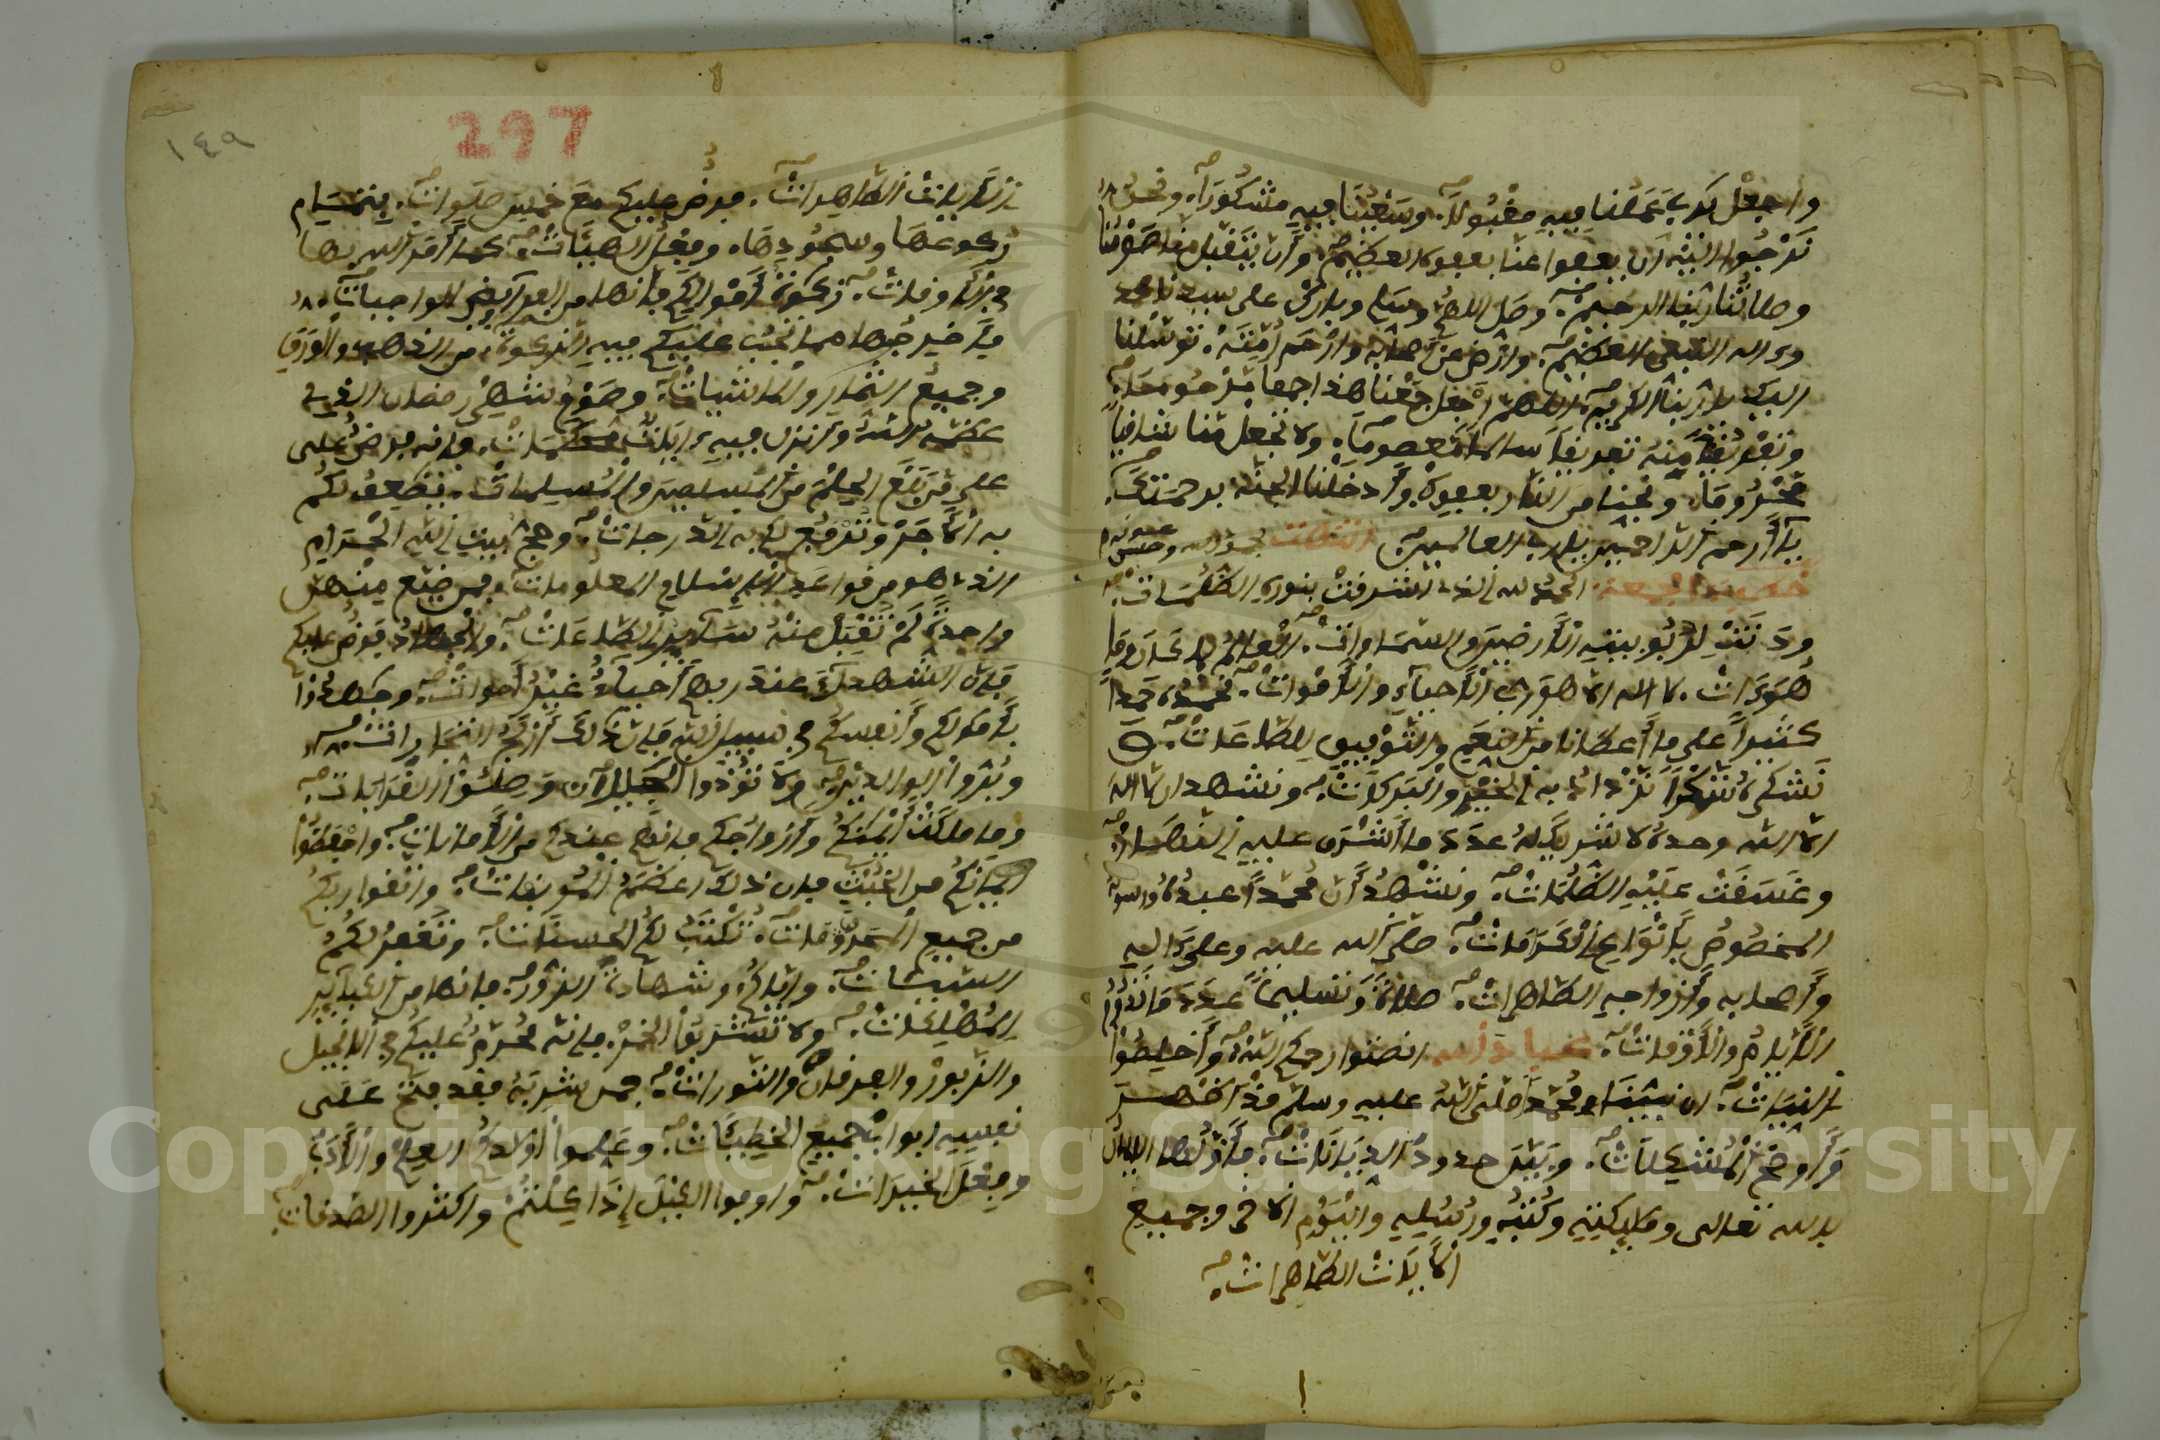 واجعل يارب عملنا فيه مقبولا وسعينا فيه مشكورا ونحن
نرجوا الله ان يعفوا عنا بعفوه العظيم وأن يتقبل منا صومنا
وصلاتنا ربنا الرحيم وصل اللهم وسلم وبارك على سيدنا محمد
وءاله النبي العظيم وارض عن أصحابه وارحم أمته توسلنا
اليك ربنا الكريم اللهم اجعل جمعنا هذا جمعا مرحوما
وتفرقنا منه تفريقا سالما معصوما ولا تجعل منا شقيا
محروما ونجنا من النار بعفوك وأدخلنا الجنة برحمتك
يآ أرحم الراحمين يارب العالمين انتهت بحمد الله وحسن عونه
خطبة الجمعة الحمد لله الذي اشرقت بنوره الظلمات
ودانت لربوبيته الأرضين والسماوات العالم بما كان وما
هو ءات لا اله الا هو رب الأحياء والأموات نحمده حمدا
كثيرا على ما أعطانا من النعم والتوفيق للطاعات
نشكره شكرا نزداد به الخير والبركات ونشهد ان لا اله
الا الله وحده لا شريك له عدد ما أشرق عليه النهار
وغسقت عليه الظلمات ونشهد أن محمدا عبده ورسوله
المخصوص بأنواع الكرامات صلى الله عليه وعلى ءاله
وأصحابه وأزواجه الطاهرات صلاة وتسليما عدد ما تدوم
الأيام والأوقات عباد الله انصتوا رحمكم الله وأخلصوا
النيات ان نبينا محمد صلى الله عليه وسلم قد اظهر
وأوضح المشكلات وبين حدود الديانات فأولها الايمان
بالله تعالى وملايكته وكتبه ورسله واليوم الاخر وجميع
الأيات الطاهرات
297
١٤٩
الأيات الطاهرات فرض عليكم مع خمس صلوات بتمام
ركوعها وسجودها وفعل الهيئات كما أمر الله بها
في الأوقات زكوة أموالكم فانها من الفرايض الواجبات
فأخرجوها مما تجب عليكم فيه الزكوة من الذهب والورق
وجميع الثمار والماشيات وصوم شهر رمضان الذي
عظم الله وأنزل فيه ءايات محكمات فانه فرض على
على من بلغ الحلم من المسلمين والمسلمات تضعف لكم
به الأجر وترفع لكم به الدرجات وحج بيت الله الحرام
الذي هو من قواعد الإسلام المعلومات فمن ضيع منهن
واحدة لم تقبل منه ساير الطاعات والجهاد فرض عليكم
فإن الشهداء عند ربهم أحياء غير أموات وجاهدوا
بأموالكم وأنفسكم في سبيل الله فإن ذلك أربح التجارات
وبروا الوالدين ولا تؤذوا الجيران وصلوا القرابات
وما ملكت أيمنكم وأزواجكم فانهم عندكم من الأمانات واحفظوا
أيمانكم من الحنث فان ذلك اعظم الموبقات واتقوا ربكم
من جميع المحرمات تكتب لكم الحسنات وتغفر لكم
السيئات واياكم وشهادة الزور فانها من الكباير
المهلكات ولا تشربوا الخمر فانه محرم عليكم في الإنجيل
والزبور والفرقان والتورات فمن شربه فقد فتح على
نفسه ابواب جميع الخطيئات وعلموا أولادكم العلم والأدب
وفعل الخيرات واوفوا الكيل إذا كلتم واكثروا الصدقات
Copyright © King Saud University